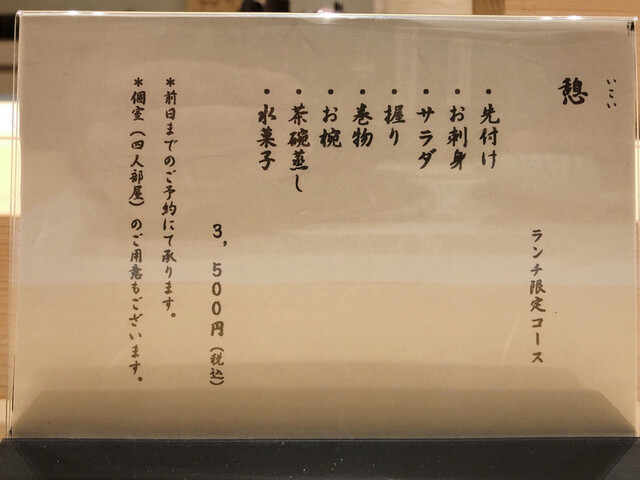 いこい
憩
ランチ限定コース
・先付け
・お刺身
・サラダ
・握り
・巻物
・お椀
・茶碗蒸し
・水菓子
3,500円（税込）
*前日までのご予約にて承ります。
*個室（四人部屋）のご用意もございます。